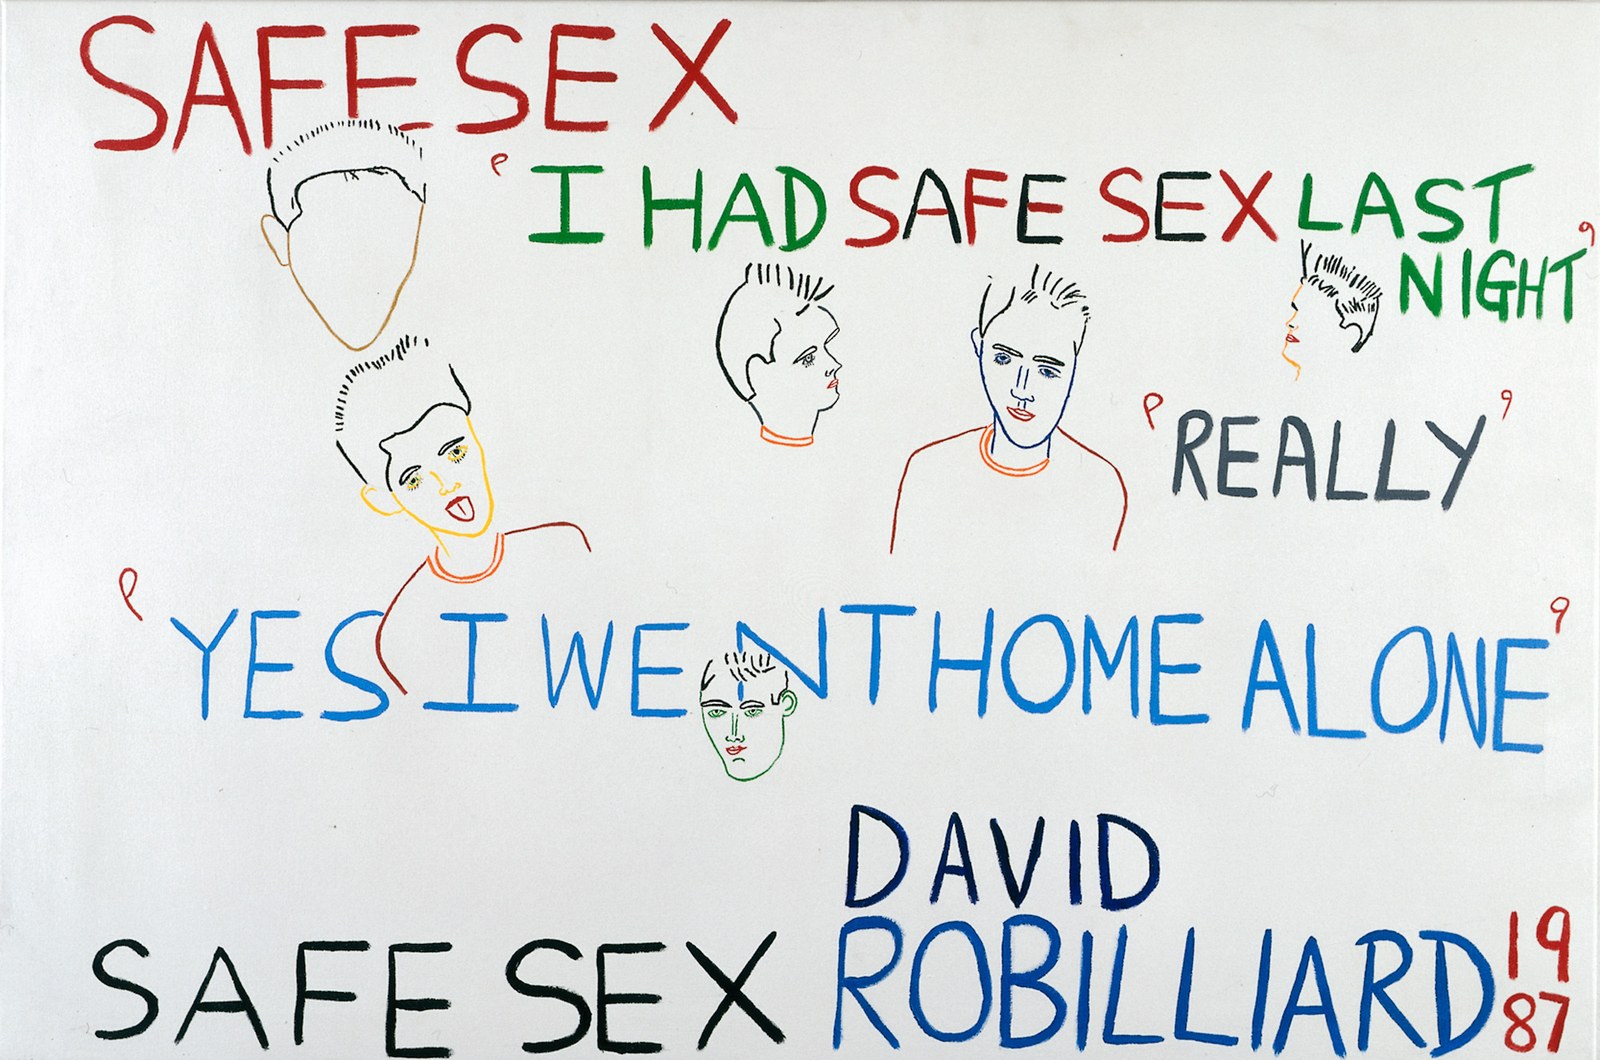 SAFE SEX
'I HAD SAFE SEX LAST
NIGHT'
'REALLY'
'YES I WENT HOME ALONE'
DAVID
SAFE SEX ROBILLIARD 19
87